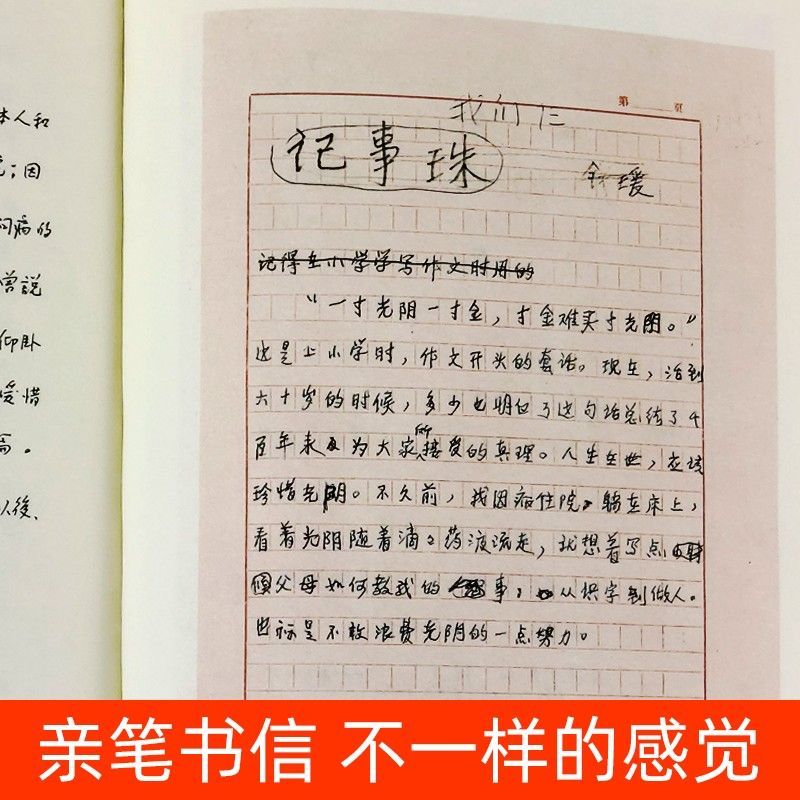 本人和
；因
病的
曾説
仰卧
爱惜
。
以後、
第 页
我们仨
记事珠
钱瑗
记得在小学学写作文时用的
“一寸光阴一寸金，寸金难买寸光阴。”
这是上小学时，作文开头的套话。现在，活到
六十岁的时候，多少也明白了这句话总结了千
百年来为大家所接受的真理。人生在世，应该
珍惜光阴。不久前，我因病住院，躺在床上，
看着光阴随着滴滴药液流走，就想着写点
父母如何教我的事，从识字到做人。
也算是不敢浪费光阴的一点努力。
亲笔书信 不一样的感觉